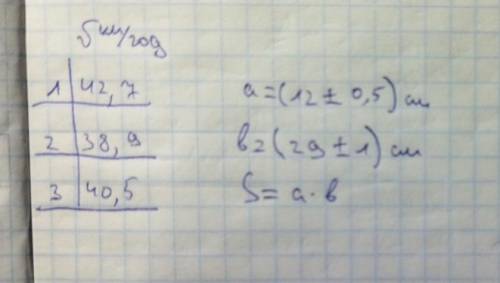 υ км/год
1 42,7
2 38,9
3 40,5
a=(12±0,5) см
b=(29±1) см
S= a·b